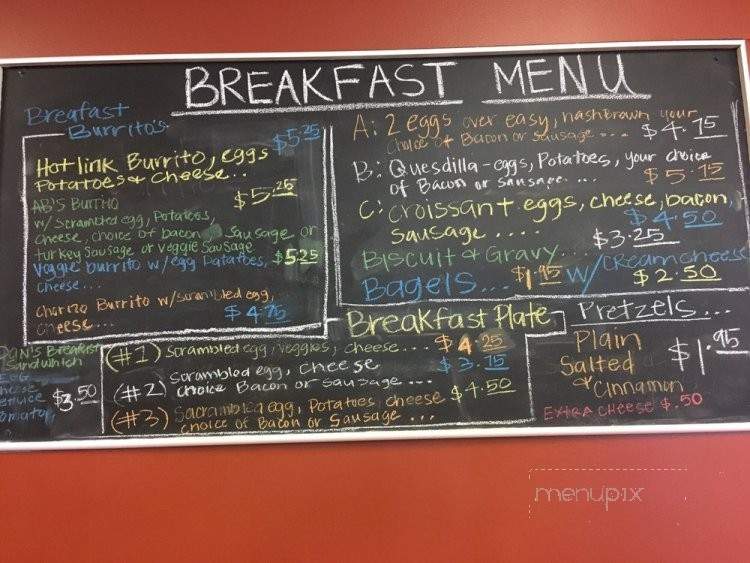 BREAKFAST MENU
Breafast
Burrito's
$5.25
Hot link Burrito, eggs
Potatoes & Cheese..
$5.25
AB'S Burrito
w/ Scrambled egg, Potatoes,
cheese, choice of bacon, sausage or
turkey Sausage or veggie Sausage
Veggie burrito w/egg Patatoes, $5.25
cheese...
Chorizo Burrito w/scrambled egg,
cheese... $4.75
A: 2 eggs over easy, hashbrown your
choice of Bacon or Sausage... $4.75
B: Quesdilla - eggs, Potatoes, your choice
of Bacon or sausage.... $5.75
C: croissant eggs, cheese, bacon,
Sausage.... $4.50
Biscuit & Gravy... $3.25
Bagels... $1.95 w/ CReamcheese
$2.50
Breakfast Plate
(#1) Scrambled egg, veggies, cheese... $4.25
(#2) Scrambled egg, cheese $3.75
choice Bacon or sausage...
(#3) Sacrambled egg, Potatoes, cheese $4.50
choice of Bacon or Sausage...
Pretzels...
Plain $1.95
Salted
& Cinnamon
EXTRA CHEESE $.50
Dan's Breakfast
Sandwhich
EGG
cheese $3.50
Lettuce
Tomato,
menupix